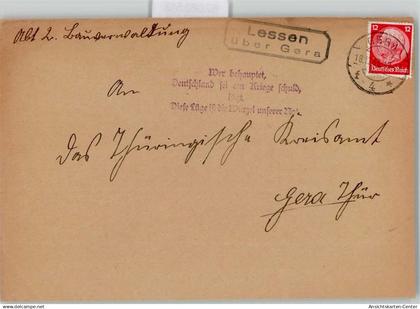 Abt 2. Bauverwaltung
Lessen
über Gera
12 12
Deutsches Reich
Wer behauptet,
Deutschland sei am Kriege schuld,
lügt.
Diese Lüge ist die Wurzel unserer Not.
An
das Thüringische Kreisamt
Gera Thür
Ansichtskarten-Center